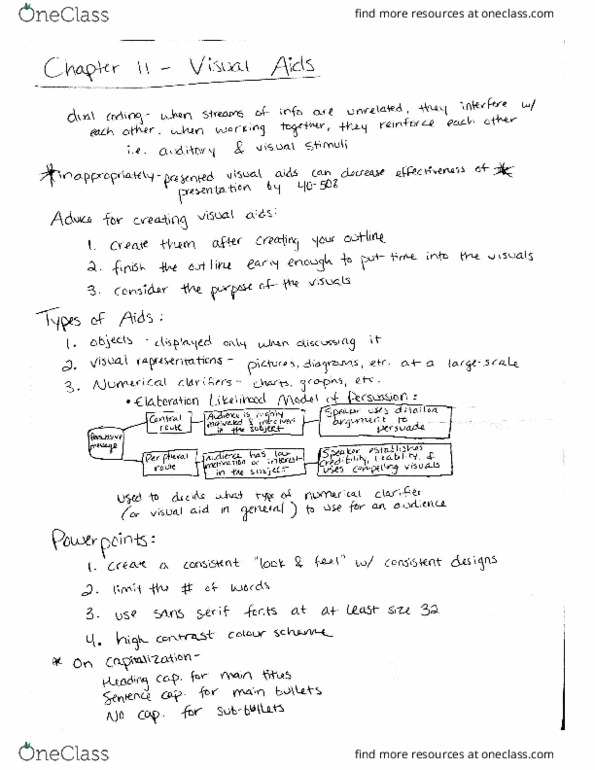 OneClass
find more resources at oneclass.com
Chapter 11 - Visual Aids
dual coding - when streams of info are unrelated, they interfere w/
each other. when working together, they reinforce each other
i.e. auditory & visual stimuli
*inappropriately-presented visual aids can decrease effectiveness of *
presentation by 40-50%
Advice for creating visual aids:
1. create them after creating your outline
2. finish the outline early enough to put time into the visuals
3. consider the purpose of the visuals
Types of Aids:
1. objects - displayed only when discussing it
2. visual representations - pictures, diagrams, etc. at a large-scale
3. Numerical clarifiers - charts, graphs, etc.
• Elaboration Likelihood Model of Persuasion:
Persuasive message
Central route
Audience is highly motivated & interested in the subject
Speaker uses detail on argument to persuade
Peripheral route
Audience has low motivation or interest in the subject
Speaker establishes credibility, likability, & uses compelling visuals
used to decide what type of numerical clarifier
(or visual aid in general) to use for an audience
Powerpoints:
1. create a consistent "look & feel" w/ consistent designs
2. limit the # of words
3. use sans serif fonts at at least size 32
4. high contrast colour scheme
* On capitalization -
Heading cap. for main titles
Sentence cap. for main bullets
No cap. for sub-bullets
OneClass
find more resources at oneclass.com